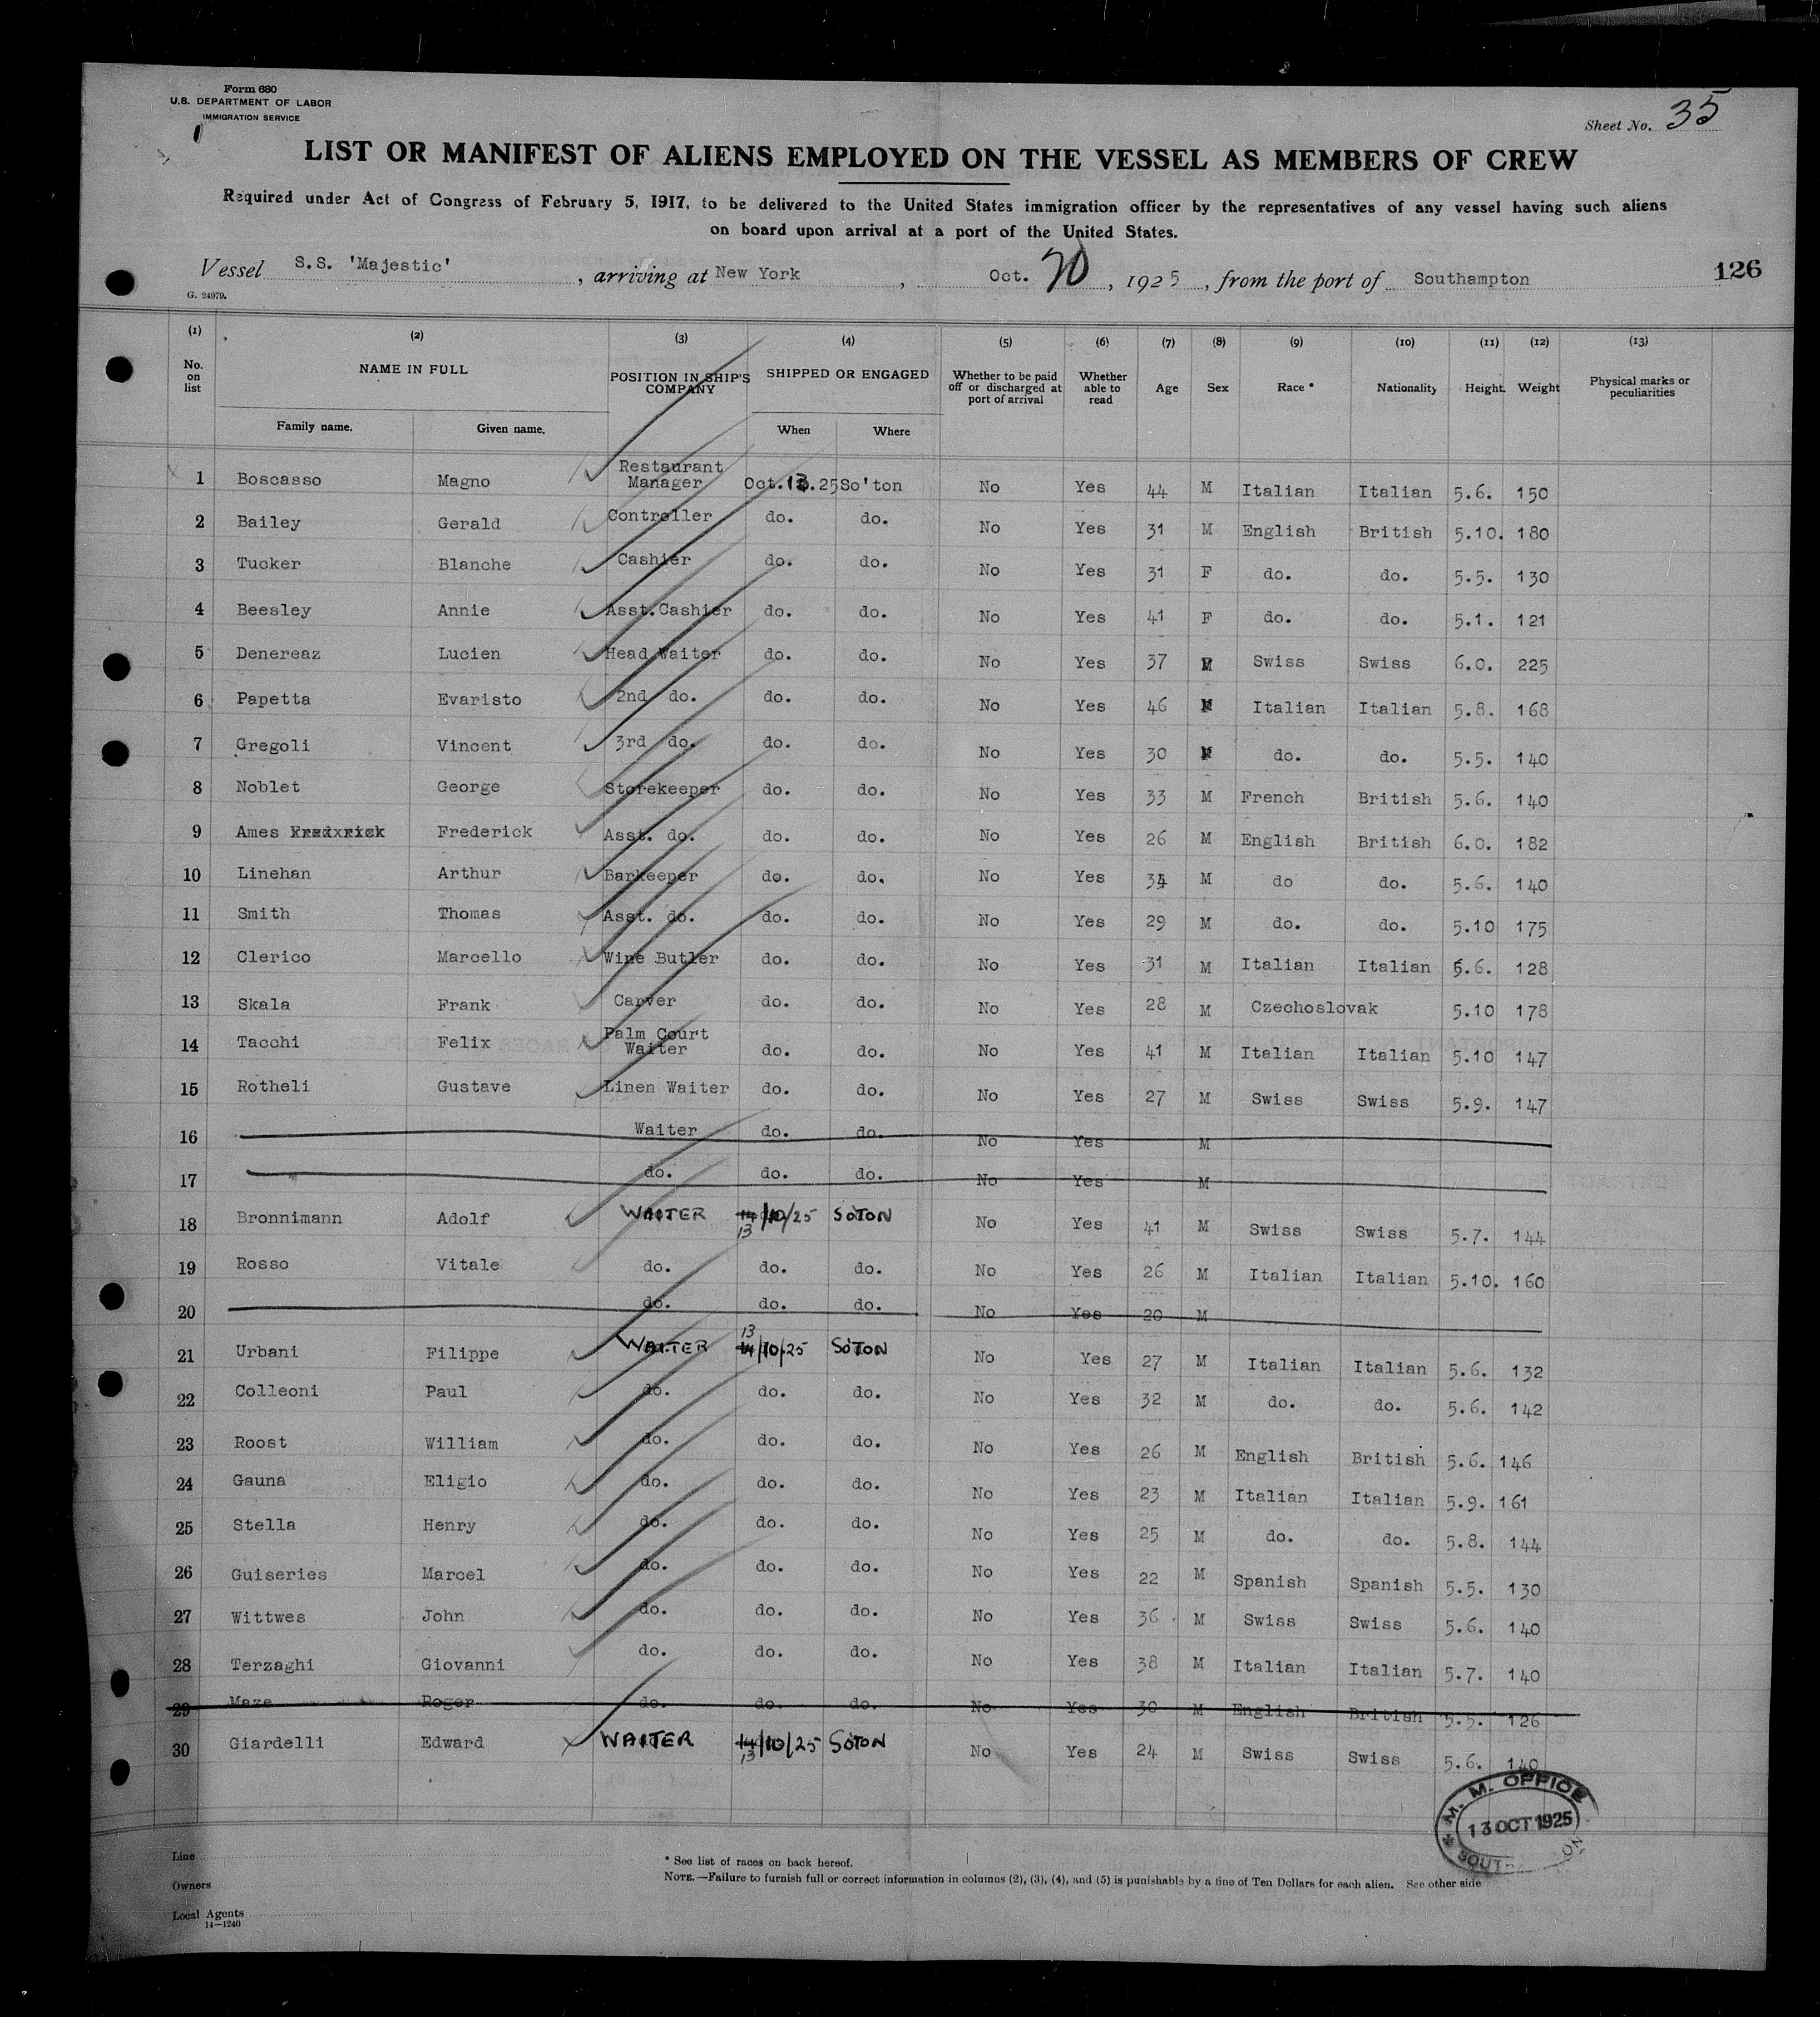 Form 680
U.S. DEPARTMENT OF LABOR
IMMIGRATION SERVICE
Sheet No. 35
LIST OR MANIFEST OF ALIENS EMPLOYED ON THE VESSEL AS MEMBERS OF CREW
Required under Act of Congress of February 5, 1917, to be delivered to the United States immigration officer by the representatives of any vessel having such aliens
on board upon arrival at a port of the United States.
Vessel S.S. 'Majestic', arriving at New York, Oct. 20, 1925, from the port of Southampton
126
G. 24979.
(1) (2) (3) (4) (5) (6) (7) (8) (9) (10) (11) (12) (13)
No. on list NAME IN FULL POSITION IN SHIP'S COMPANY SHIPPED OR ENGAGED Whether to be paid off or discharged at port of arrival Whether able to read Age Sex Race * Nationality Height. Weight Physical marks or peculiarities
Family name. Given name. When Where
1 Boscasso Magno Restaurant Manager Oct.13.25 So'ton No Yes 44 M Italian Italian 5.6. 150
2 Bailey Gerald Controller do. do. No Yes 31 M English British 5.10. 180
3 Tucker Blanche Cashier do. do. No Yes 31 F do. do. 5.5. 130
4 Beesley Annie Asst.Cashier do. do. No Yes 41 F do. do. 5.1. 121
5 Denereaz Lucien Head Waiter do. do. No Yes 37 M Swiss Swiss 6.0. 225
6 Papetta Evaristo 2nd do. do. do. No Yes 46 M Italian Italian 5.8. 168
7 Gregoli Vincent 3rd do. do. do. No Yes 30 M do. do. 5.5. 140
8 Noblet George Storekeeper do. do. No Yes 33 M French British 5.6. 140
9 Ames Frederick Asst. do. do. do. No Yes 26 M English British 6.0. 182
10 Linehan Arthur Barkeeper do. do. No Yes 34 M do do. 5.6. 140
11 Smith Thomas Asst. do. do. do. No Yes 29 M do. do. 5.10 175
12 Clerico Marcello Wine Butler do. do. No Yes 31 M Italian Italian 5.6. 128
13 Skala Frank Carver do. do. No Yes 28 M Czechoslovak 5.10 178
14 Tacchi Felix Palm Court Waiter do. do. No Yes 41 M Italian Italian 5.10 147
15 Rotheli Gustave Linen Waiter do. do. No Yes 27 M Swiss Swiss 5.9. 147
16 Waiter do. do. No Yes M
17 do. do. do. No Yes M
18 Bronnimann Adolf WAITER 14/10/25 SOTON No Yes 41 M Swiss Swiss 5.7. 144
13
19 Rosso Vitale do. do. do. No Yes 26 M Italian Italian 5.10. 160
20 do. do. do. No Yes 20 M
13
21 Urbani Filippe WAITER 14/10/25 SOTON No Yes 27 M Italian Italian 5.6. 132
22 Colleoni Paul do. do. do. No Yes 32 M do. do. 5.6. 142
23 Roost William do. do. do. No Yes 26 M English British 5.6. 146
24 Gauna Eligio do. do. do. No Yes 23 M Italian Italian 5.9. 161
25 Stella Henry do. do. do. No Yes 25 M do. do. 5.8. 144
26 Guiseries Marcel do. do. do. No Yes 22 M Spanish Spanish 5.5. 130
27 Wittwes John do. do. do. No Yes 36 M Swiss Swiss 5.6. 140
28 Terzaghi Giovanni do. do. do. No Yes 38 M Italian Italian 5.7. 140
29 Maze Roger do. do. do. No Yes 30 M English British 5.5. 126
30 Giardelli Edward WAITER 14/10/25 SOTON No Yes 24 M Swiss Swiss 5.6. 140
13
M. M. OFFICE
13 OCT 1925
Line
Owners
Local Agents
14—1240
* See list of races on back hereof.
NOTE.—Failure to furnish full or correct information in columns (2), (3), (4), and (5) is punishable by a fine of Ten Dollars for each alien. See other side